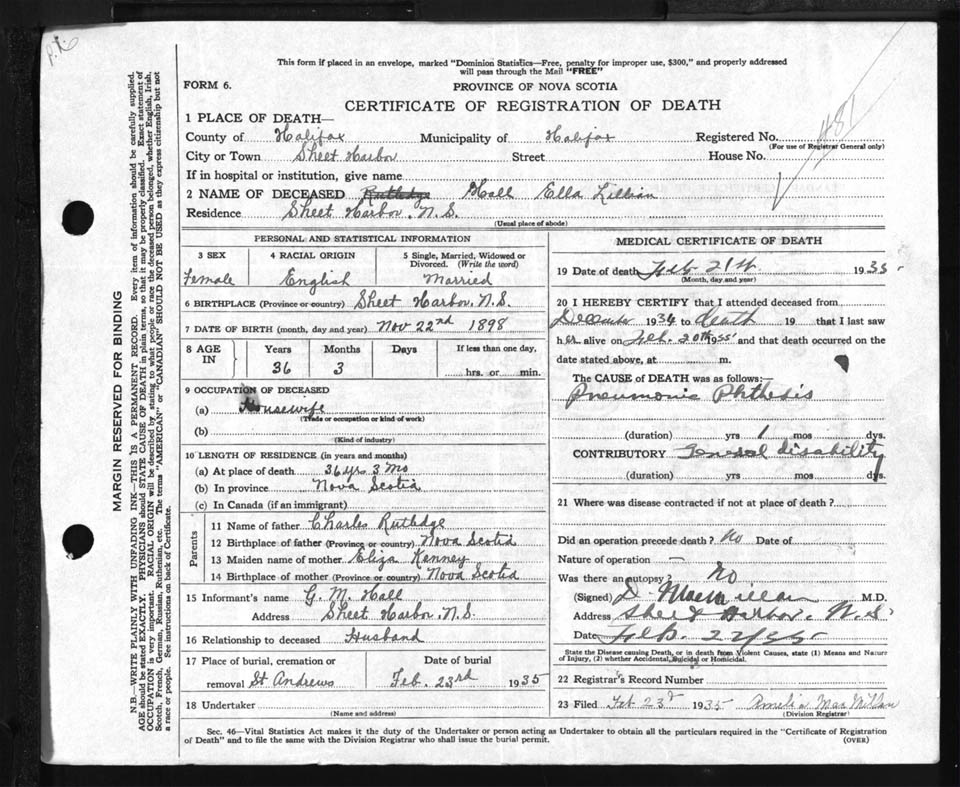 P.L.
481
This form if placed in an envelope, marked "Dominion Statistics—Free, penalty for improper use, $300," and properly addressed
will pass through the Mail "FREE"
FORM 6.
PROVINCE OF NOVA SCOTIA
CERTIFICATE OF REGISTRATION OF DEATH
1 PLACE OF DEATH—
County of Halifax Municipality of Halifax Registered No.
(For use of Registrar General only)
City or Town Sheet Harbor Street House No.
If in hospital or institution, give name
2 NAME OF DECEASED Rutledge Hall Ella Lillian
Residence Sheet Harbor. N.S.
(Usual place of abode)
PERSONAL AND STATISTICAL INFORMATION
3 SEX 4 RACIAL ORIGIN 5 Single, Married, Widowed or
Divorced. (Write the word)
Female English Married
6 BIRTHPLACE (Province or country) Sheet Harbor, N.S.
7 DATE OF BIRTH (month, day and year) Nov 22nd 1898
8 AGE IN Years Months Days If less than one day,
36 3 hrs. or min.
9 OCCUPATION OF DECEASED
(a) Housewife
(Trade or occupation or kind of work)
(b)
(Kind of industry)
10 LENGTH OF RESIDENCE (in years and months)
(a) At place of death 36 yrs 3 mo
(b) In province Nova Scotia
(c) In Canada (if an immigrant)
Parents
11 Name of father Charles Rutledge
12 Birthplace of father (Province or country) Nova Scotia
13 Maiden name of mother Eliza Kenney
14 Birthplace of mother (Province or country) Nova Scotia
15 Informant's name G. M. Hall
Address Sheet Harbor. N.S.
16 Relationship to deceased Husband
17 Place of burial, cremation or Date of burial
removal St Andrews Feb. 23rd 1935
18 Undertaker
(Name and address)
MEDICAL CERTIFICATE OF DEATH
19 Date of death Feb 21st 1935
(Month, day and year)
20 I HEREBY CERTIFY that I attended deceased from
December 1934 to death 19 that I last saw
her alive on Feb. 20th 1935 and that death occurred on the
date stated above, at m.
The CAUSE of DEATH was as follows:
Pneumonic Phthisis
(duration) yrs 1 mos dys.
CONTRIBUTORY General disability
(duration) yrs mos dys.
21 Where was disease contracted if not at place of death?
Did an operation precede death? No Date of
Nature of operation —
Was there an autopsy? No
(Signed) D. Macmillan M.D.
Address Sheet Harbor. N.S.
Date Feb. 22/35
State the Disease causing Death, or in death from Violent Causes, state (1) Means and Nature
of Injury, (2) whether Accidental, Suicidal or Homicidal.
22 Registrar's Record Number
23 Filed Feb 23rd 1935 Amelia MacMillan
(Division Registrar)
Sec. 46—Vital Statistics Act makes it the duty of the Undertaker or person acting as Undertaker to obtain all the particulars required in the "Certificate of Registration
of Death" and to file the same with the Division Registrar who shall issue the burial permit.
(OVER)
MARGIN RESERVED FOR BINDING
N.B.—WRITE PLAINLY WITH UNFADING INK—THIS IS A PERMANENT RECORD. Every item of information should be carefully supplied.
AGE should be stated EXACTLY. PHYSICIANS should STATE CAUSE OF DEATH in plain terms, so that it may be properly classified. Exact statement of
OCCUPATION is very important. RACIAL ORIGIN will be described by stating to what people or race the deceased person belonged, whether English, Irish,
Scotch, French, German, Russian, Ruthenian, etc. The terms "AMERICAN" or "CANADIAN" SHOULD NOT BE USED as they express citizenship but not
a race or people. See instructions on back of Certificate.